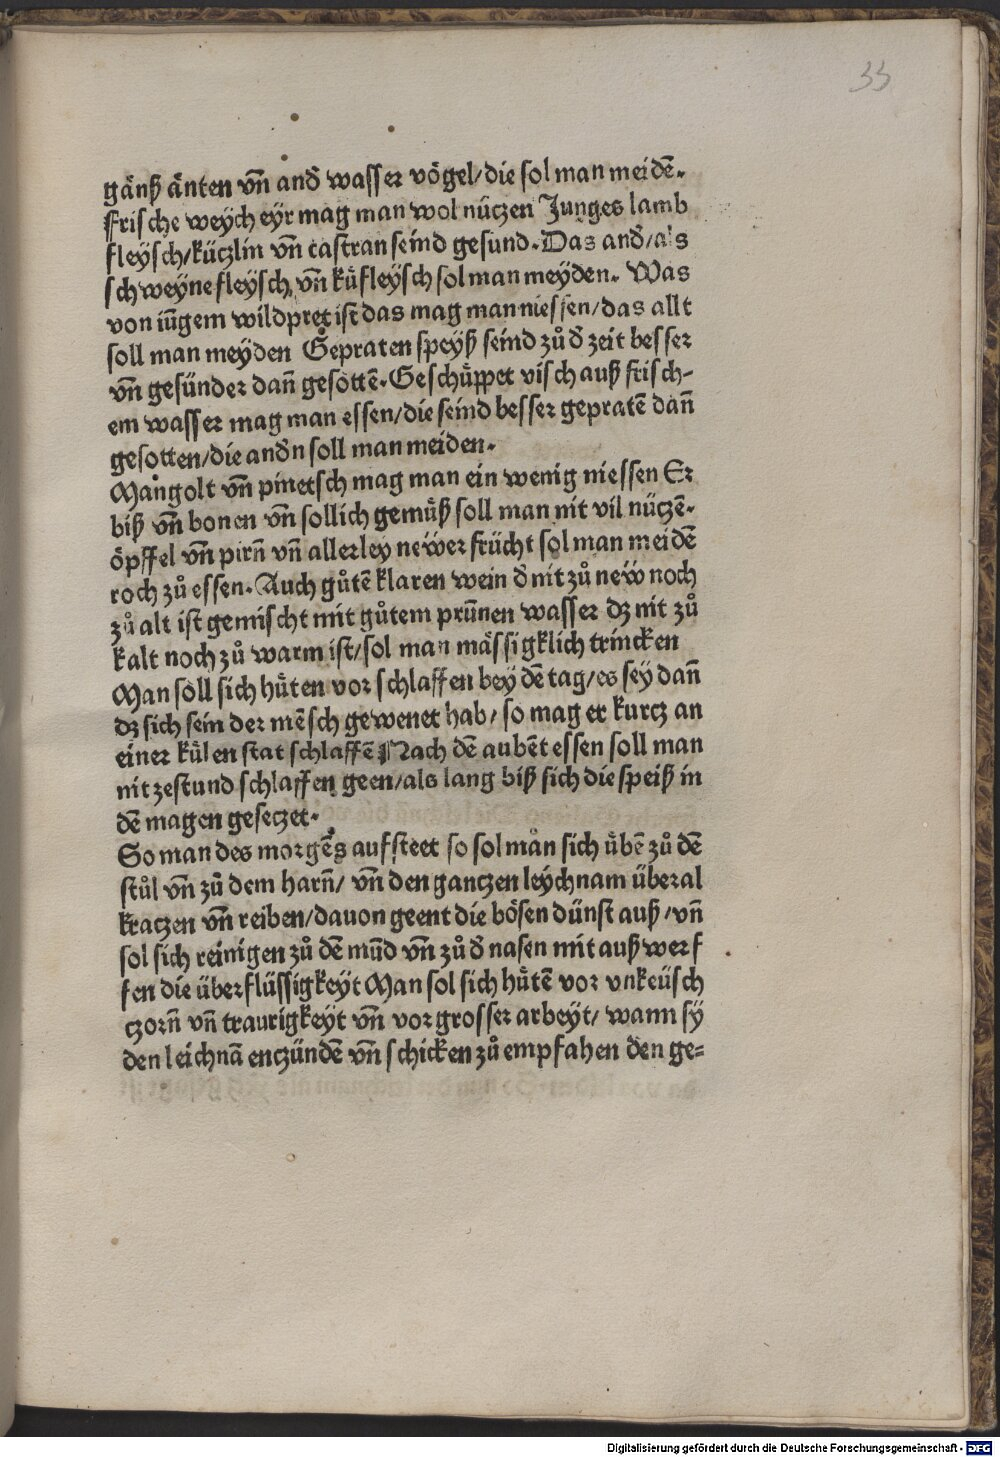 33
gänß änten vn̄ and̄ wasser vögel/die sol man meidē.
Frische weych eyr mag man wol nüczen Junges lamb
fleysch/küczlin vn̄ castran seind gesund. Das and̄/als
schweyne fleysch, vn̄ kůfleysch sol man meyden. Was
von iūgem wildpret ist das mag man niessen/das allt
soll man meyden Gepraten speyß seind zů d̄ zeit besser
vn̄ gesünder dañ gesottē. Geschůppet visch auß frisch-
em wasser mag man essen/die seind besser gepratē dañ
gesotten/die and̄n soll man meiden.
Mangolt vn̄ pinetsch mag man ein wenig niessen Er
biß vn̄ bonen vn̄ sollich gemůß soll man nit vil nüczē.
öpffel vn̄ pirn̄ vn̄ allerley newer frücht sol man meidē
roch zů essen. Auch gůtē klaren wein d̄ nit zů new noch
zů alt ist gemischt mit gůtem prūnen wasser dz nit zů
kalt noch zů warm ist/sol man mässigklich trincken
Man soll sich hůten vor schlaffen bey dē tag/es sey dañ
dz sich sein der mēsch gewenet hab/ so mag er kurcz an
einer kůlen stat schlaffē Nach dē aubēt essen soll man
nit zestund schlaffen geen/als lang biß sich die speiß in
dē magen geseczet.
So man des morgēs aufsteet so sol man sich ůbē zů dē
stůl vn̄ zů dem harn̄/ vn̄ den ganczen leychnam überal
kraczen vn̄ reiben/dauon geent die bösen dünst auß/vn̄
sol sich reinigen zů dē mūd vn̄ zů d̄ nasen mit auß werf
fen die überflüssigkeyt Man sol sich hůtē vor vnkeüsch
czorn̄ vn̄ traurigkeyt vn̄ vor grosser arbeyt/ wann sy
den leichnā enczündē vn̄ schicken zů empfahen den ge=
Digitalisierung gefördert durch die Deutsche Forschungsgemeinschaft - DFG